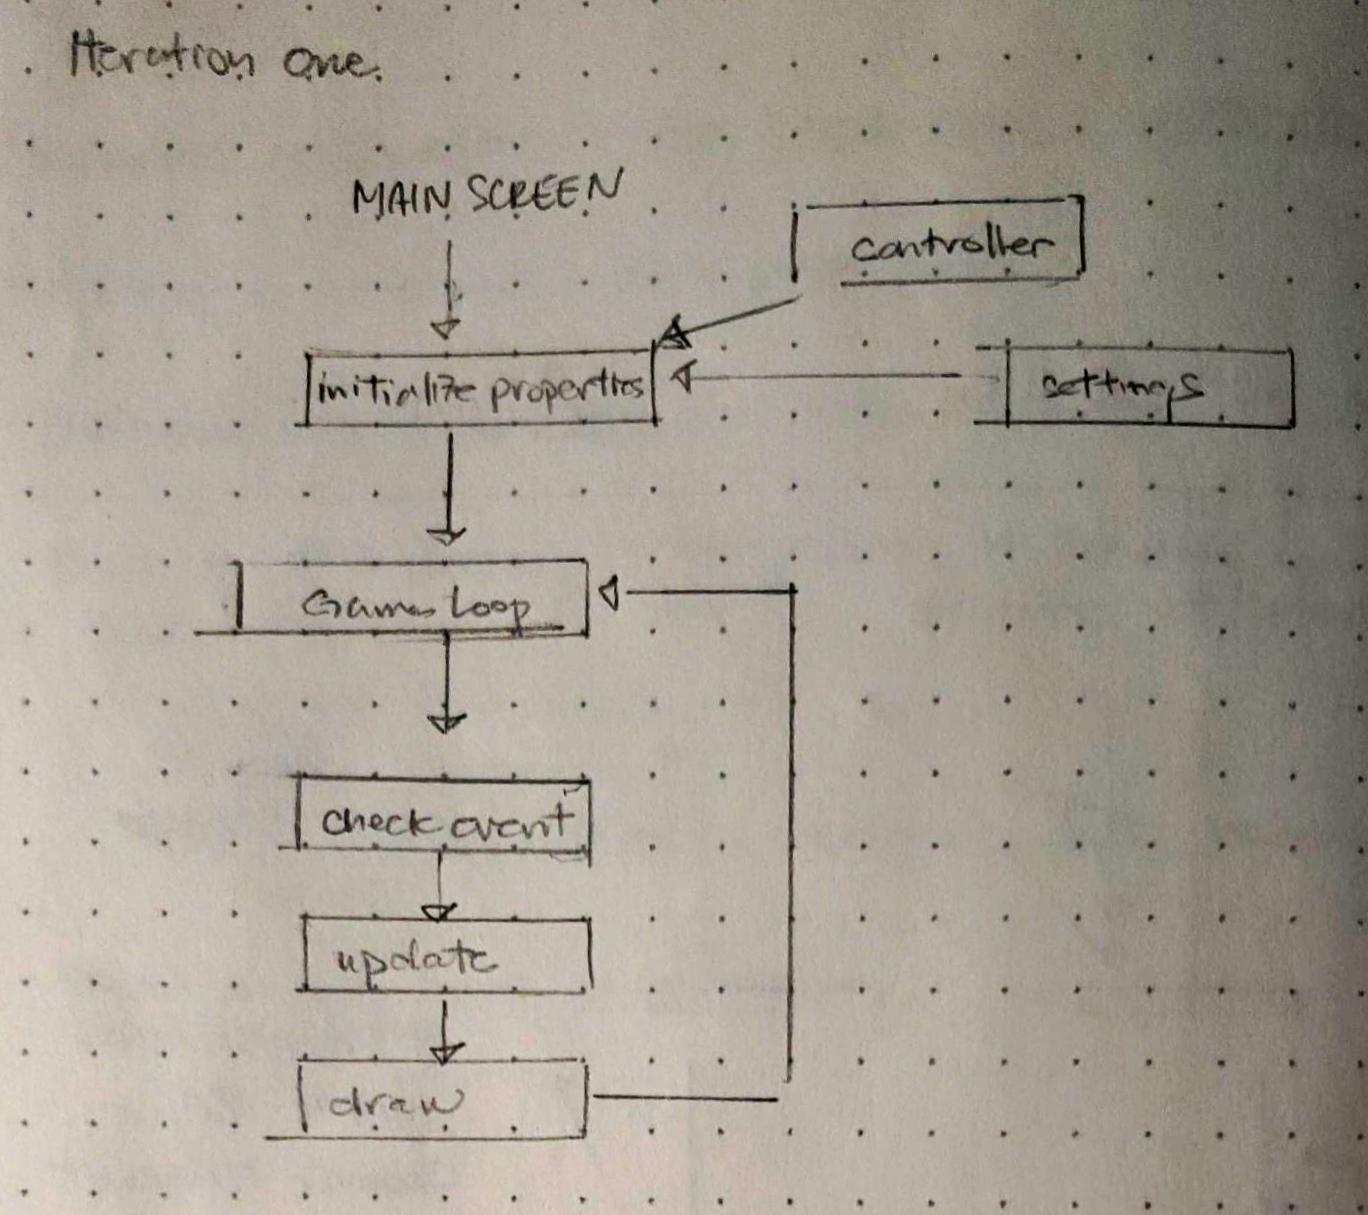 Iteration one.
MAIN SCREEN
controller
initialize properties
settings
Game Loop
check event
update
draw